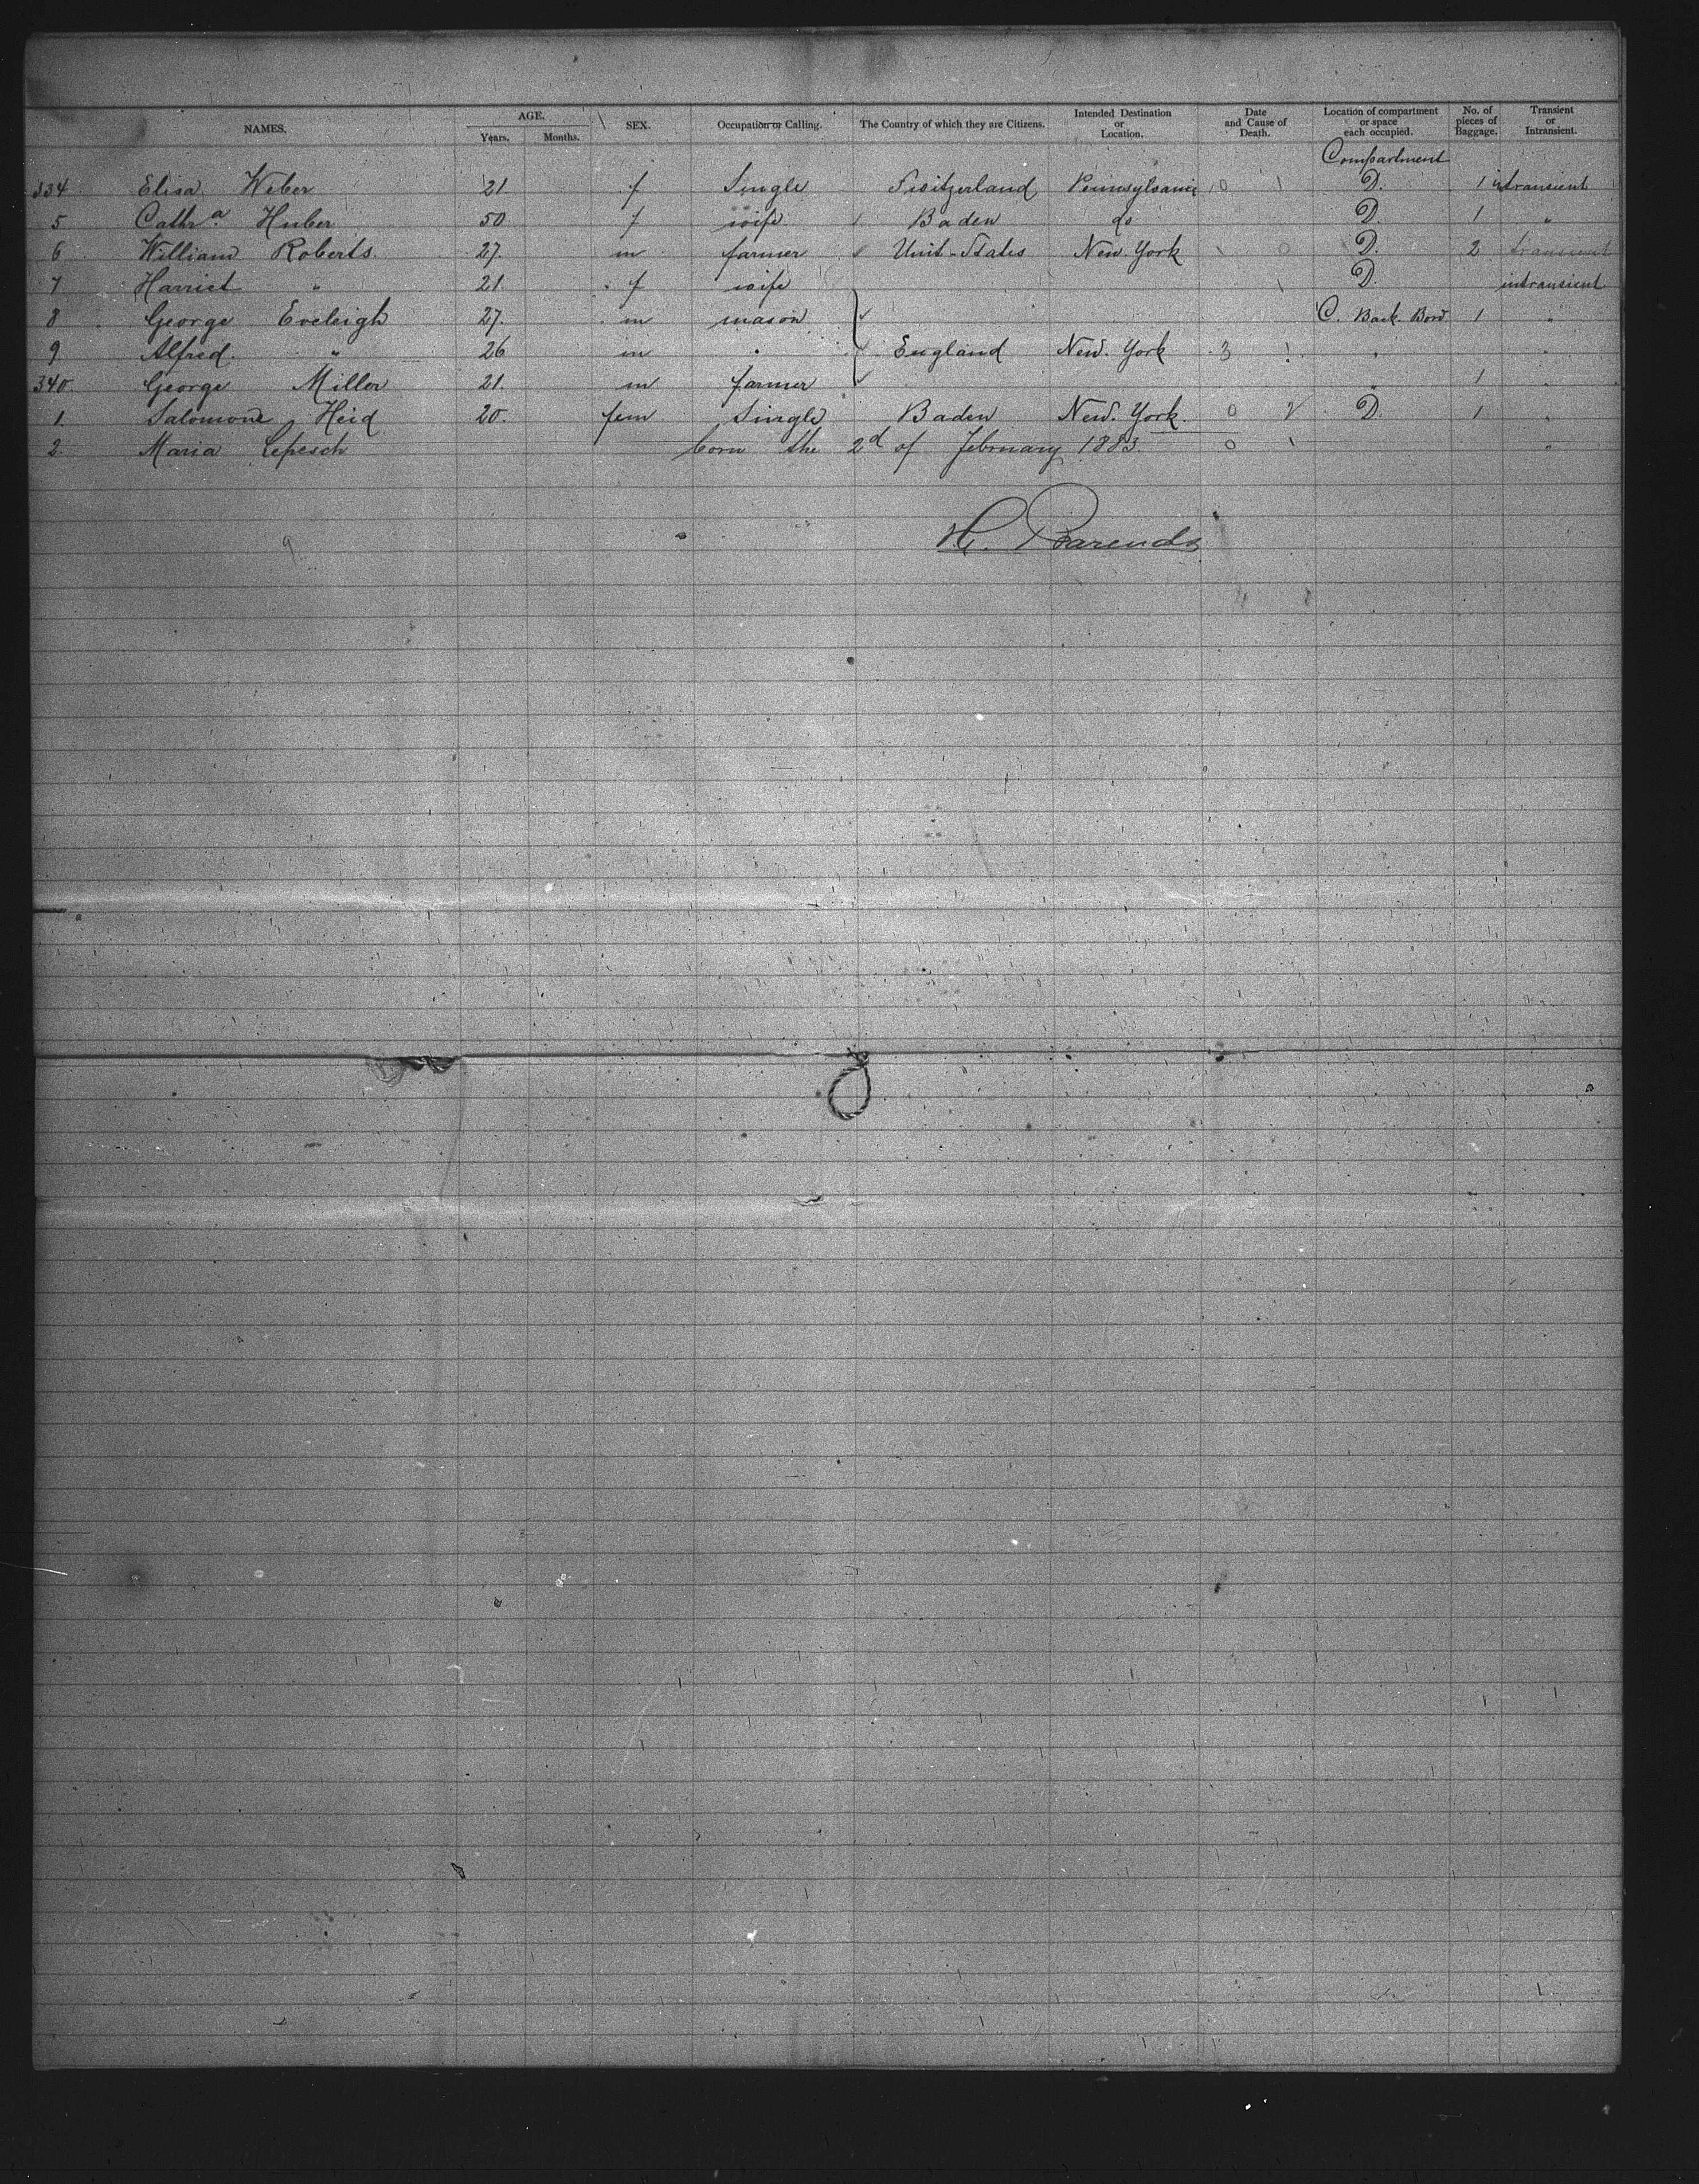 NAMES. AGE. Years. Months. SEX. Occupation or Calling. The Country of which they are Citizens. Intended Destination or Location. Date and Cause of Death. Location of compartment or space each occupied. No. of pieces of Baggage. Transient or Intransient.
Compartment
334 Elisa Weber 21 f Single Switzerland Pennsylvania 0 D. 1 intransient
5 Cathr.a Huber 50 f wife Baden do D 1 "
6 William Roberts 27. m farmer Unit-States New York 0 D. 2 transient
7 Harriet " 21. f wife D. intransient
8 George Eveleigh 27. m mason C. Back. Bow 1 "
9 Alfred. " 26 m " England New. York 3 " "
340. George Miller 21. m farmer " 1 "
1. Salomone Heid 20. fem Single Baden New. York 0 D. 1 "
2. Maria Lepesch born the 2d of February 1883. 0 "
H. Barends